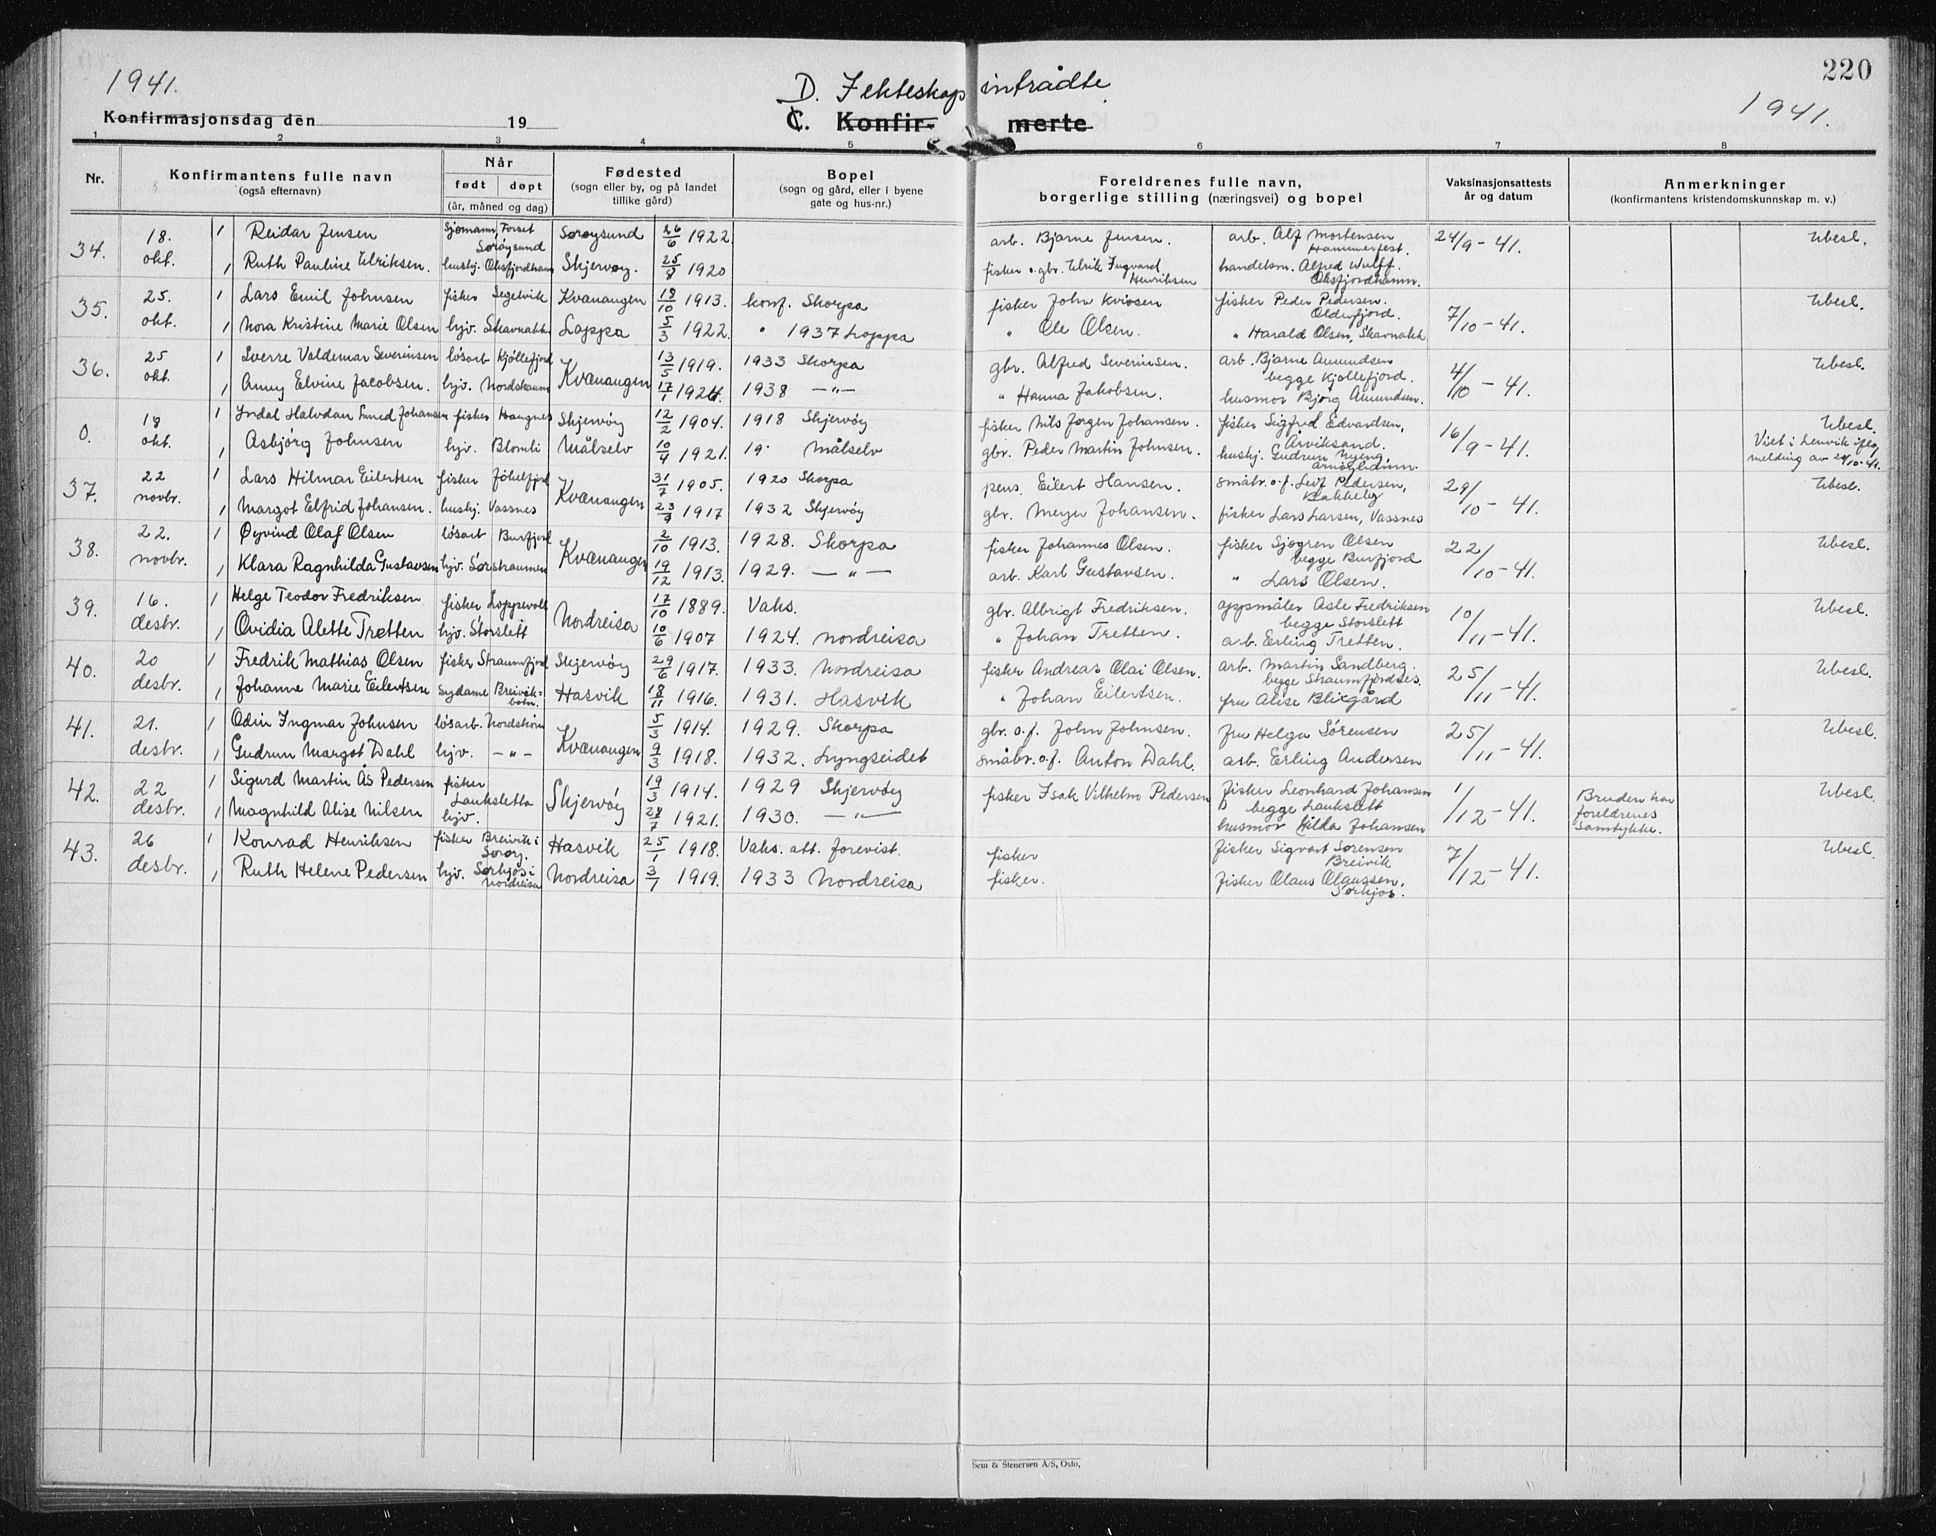 1941.
D. I ekteskap intrådte
220
1941.
Konfirmasjonsdag den 19
C. Konfirmerte
1 2 3 4 5 6 7 8
Nr.
Konfirmantens fulle navn
(også efternavn)
Når
født døpt
(år, måned og dag)
Fødested
(sogn eller by, og på landet
tillike gård)
Bopel
(sogn og gård, eller i byene
gate og hus-nr.)
Foreldrenes fulle navn,
borgerlige stilling (næringsvei) og bopel
Vaksinasjonsattests
år og datum
Anmerkninger
(konfirmantens kristendomskunnskap m. v.)
34. 18. okt. 1 Reidar Jensen Sjømann, Forsøl Sørøysund Sørøysund 26/6 1922. arb. Bjarne Jensen. arb. Alf Mortensen Hammerfest. 24/9-41. Ubesl.
1 Ruth Pauline Ulriksen. hushj. Oksfjordhamn Skjervøy. 25/8 1920 fisker o. gbr. Ulrik Ingvard Henriksen handelsm. Alfred Wulff. Oksfjordhamn.
35. 25. okt. 1 Lars Emil Johnsen fisker Segelvik Kvænangen 18/10 1913. konf. Skorpa fisker John Kviosen fisker Peder Pedersen. Olderfjord. 7/10-41. Ubesl.
1 Nora Kristine Marie Olsen hjv. Skavnakk Loppa 5/3 1922. " 1937 Loppa " Ole Olsen. " Harald Olsen, Skavnakk
36. 25 okt. 1 Sverre Valdemar Severinsen løsarb. Kjøllefjord Kvænangen 13/5 1919. 1933 Skorpa gbr. Alfred Severinsen. arb. Bjarne Amundsen begge Kjøllefjord. 4/10-41. Ubesl.
1 Anny Elvine Jacobsen. hjv. Nordstraum 17/1 1924. 1938 —"— " Hanna Jakobsen. husmor Bjørg Amundsen.
0. 18 okt. 1 Yndal Halvdan Johansen fisker Haugnes Skjervøy 12/2 1904. 1918 Skjervøy fisker Nils Jørgen Johansen. fisker Sigfred Edvardsen, Årviksand. 16/9-41. Ubesl.
1 Asbjørg Johnsen hjv. Blomli Målselv 10/4 1921. 19. Målselv gbr. Peder Martin Johnsen. hushj. Gudrun Nyeng, Viet i Lenvik ifølg melding av 20/10-41.
37. 22 novbr. 1 Lars Hilmar Eilertsen fisker Jøkelfjord Kvænangen 31/7 1905. 1920 Skorpa pens. Eilert Hansen. småbr. o. f. Leif Pedersen, Bakkeby 29/10-41. Ubesl.
1 Margot Elfrid Johansen. hushj. Vassnes 23/9 1917 1932 Skjervøy gbr. Meyer Johansen. fisker Lars Larsen, Vassnes
38. 22. novbr. 1 Øyvind Olaf Olsen løsarb Burfjord Kvænangen 2/10 1913. 1928. Skorpa fisker Johannes Olsen. fisker Sjøgren Olsen begge Burfjord 22/10-41. Ubesl.
1 Klara Ragnhilda Gustavsen hjv. Sørstraumen 19/12 1913. 1929. —"— arb. Karl Gustavsen. " Lars Olsen.
39. 16. desbr. 1 Helge Teodor Fredriksen fisker Loppevoll Nordreisa 17/10 1889. Vaks. gbr. Albrigt Fredriksen. oppmåler Asle Fredriksen begge Storslett 10/11-41. Ubesl.
1 Ovidia Alette Tretten hjv. Storslett 10/6 1907 1924. Nordreisa " Johan Tretten. arb. Erling Tretten.
40. 20 desbr. 1 Fredrik Mathias Olsen fisker Straumfjord Skjervøy 29/6 1917. 1933. Nordreisa fisker Andreas Olai Olsen. arb. Martin Sandberg. begge Straumfjordnes. 25/11-41. Ubesl.
1 Johanne Marie Eilertsen sydame Breivikbotn. Hasvik 18/11 1916. 1931. Hasvik " Johan Eilertsen. fru Alise Blixgård
41. 21. desbr. 1 Odin Ingmar Johnsen løsarb. Nordstrøm Kvænangen 5/3 1914. 1929. Skorpa gbr. o. f. John Johnsen. fru Helga Sørensen 25/11-41. Ubesl.
1 Gudrun Margot Dahl hjv. —"— 9/3 1918. 1932. Lyngseidet småbr. o. f. Anton Dahl. arb. Erling Andersen
42. 22 desbr. 1 Sigurd Martin Ås Pedersen fisker Lauksletta Skjervøy 19/3 1914. 1929 Skjervøy fisker Isak Vilhelm Pedersen fisker Leonhard Johansen begge Laukslett 1/12-41. Bruden har foreldrenes samtykke. Ubesl.
1 Magnhild Alise Nilsen hjv. 28/7 1921. 1930. —"— husmor Hilda Johansen
43. 26 desbr. 1 Konrad Henriksen fisker Breivik i Sørøy. Hasvik 25/1 1918. Vaks. att. forevist. fisker fisker Sigvart Sørensen Breivik 7/12-41. Ubesl.
1 Ruth Helene Pedersen hjv. Sørkjos i Nordreisa Nordreisa 3/7 1919. 1933 Nordreisa fisker. fisker Olaus Olaussen, Sørkjos.
Sem & Stenersen A/S, Oslo.